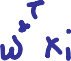 w^{*T} x_i